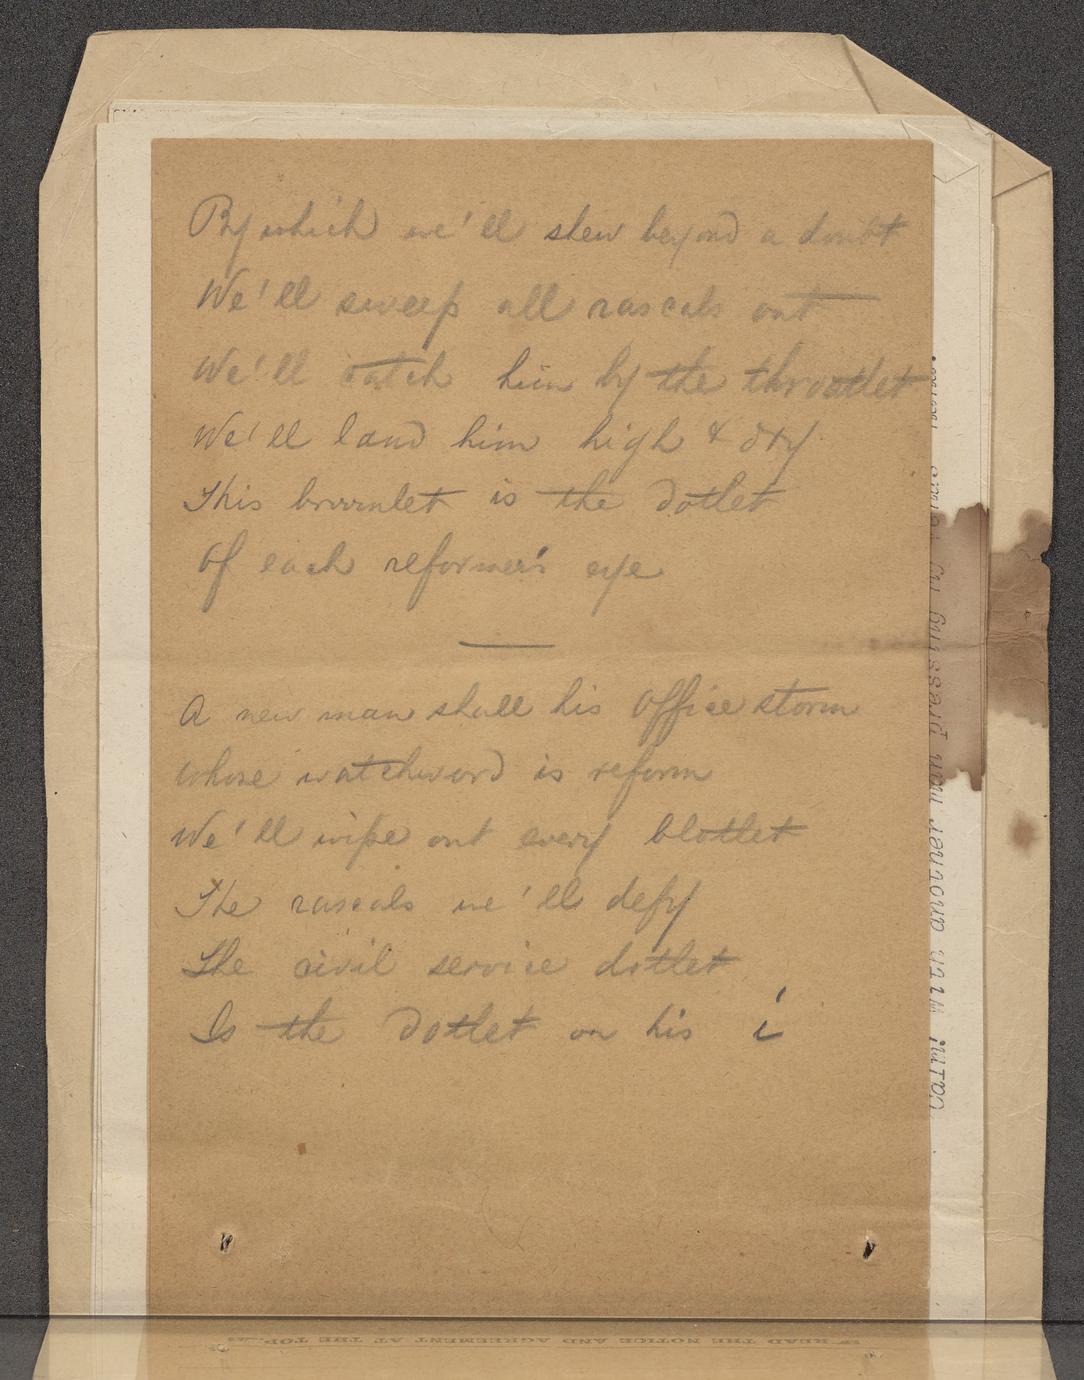 By which we'll shew beyond a doubt
We'll sweep all rascals out
We'll catch him by the throatlet
We'll land him high & dry
This broomlet is the dotlet
Of each reformer's eye
A new man shall his office storm
Whose watchword is reform
We'll wipe out every blotlet
The rascals we'll defy
The civil service dotlet
Is the dotlet on his i
Calm! With another man pressing my
READ THE NOTICE AND AGREEMENT AT THE TOP.